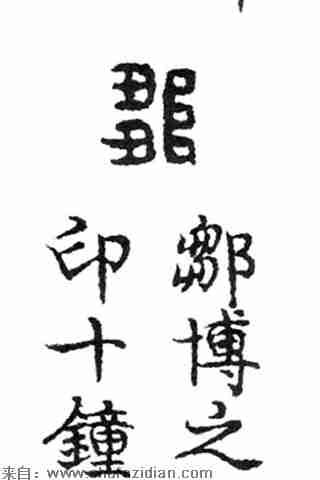 鄒
鄒博之
印十鐘
来自：www.shufazidian.com